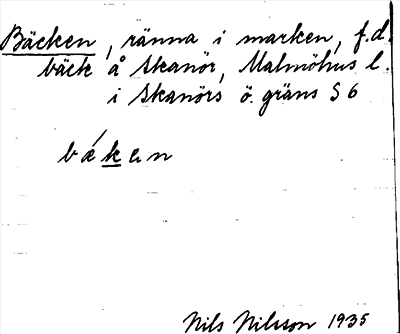 Bäcken, ränna i marken, f.d.
bäck å Skanör, Malmöhus l.
i Skanörs ö. gräns S 6
bǽken
Nils Nilsson 1935